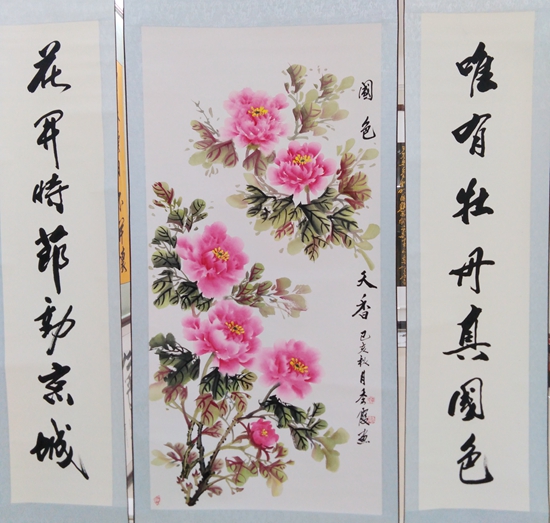 唯有牡丹真國色
國色
天香
己亥秋月
花開時節動京城